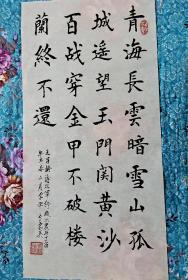 青海長雲暗雪山孤
城遥望玉門関黄沙
百战穿金甲不破楼
蘭終不還